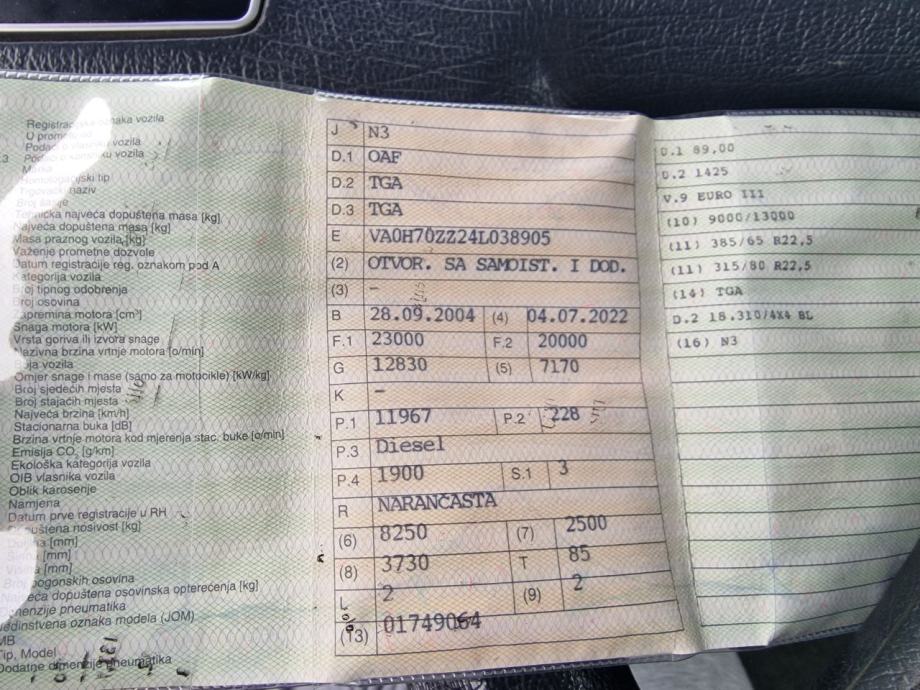 Registracijska oznaka vozila
U prometu od
Podaci o vlasniku vozila
Podaci o korisniku vozila
Marka
Homologacijski tip
Trgovački naziv
Broj šasije
Tehnička najveća dopuštena masa [kg]
Najveća dopuštena masa [kg]
Masa praznog vozila [kg]
Važenje prometne dozvole
Datum registracije reg. oznakom pod A
Kategorija vozila
Broj tipnog odobrenja
Broj osovina
Zapremina motora [cm³]
Snaga motora [kW]
Vrsta goriva ili izvora snage
Nazivna brzina vrtnje motora [o/min]
Boja vozila
Omjer snage i mase (samo za motocikle) [kW/kg]
Broj sjedećih mjesta
Broj stajaćih mjesta
Najveća brzina [km/h]
Stacionarna buka [dB]
Brzina vrtnje motora kod mjerenja stac. buke [o/min]
Emisija CO₂ [g/km]
Ekološka kategorija vozila
OIB vlasnika vozila
Oblik karoserije
Namjena
Datum prve registracije u RH
Dopuštena nosivost [kg]
[mm]
[mm]
[mm]
Broj pogonskih osovina
Najveća dopuštena osovinska opterećenja [kg]
Dimenzije pneumatika
Jedinstvena oznaka modela (JOM)
MB
Tip, Model
Dodatne dimenzije pneumatika
J N3
D.1 OAF
D.2 TGA
D.3 TGA
E VA0H70ZZ24L038905
(2) OTVOR. SA SAMOIST. I DOD.
(3) –
B 28.09.2004 (4) 04.07.2022
F.1 23000 F.2 20000
G 12830 (5) 7170
K –
P.1 11967 P.2 228
P.3 Diesel
P.4 1900 S.1 3
R NARANČASTA
(6) 8250 (7) 2500
(8) 3730 T 85
L 2 (9) 2
(13) 01749064
D.1 89,00
D.2 1425
V.9 EURO III
(10) 9000/13000
(11) 385/65 R22,5
(11) 315/80 R22,5
(14) TGA
D.2 18.310/4X4 BL
(16) N3